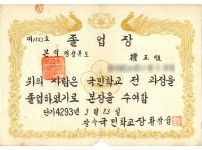 졸업장
본적 경상북도
위의 사람은 국민학교 전 과정을
졸업하였기로 본장을 수여함
단기 4293년 3월 23일
국민학교장